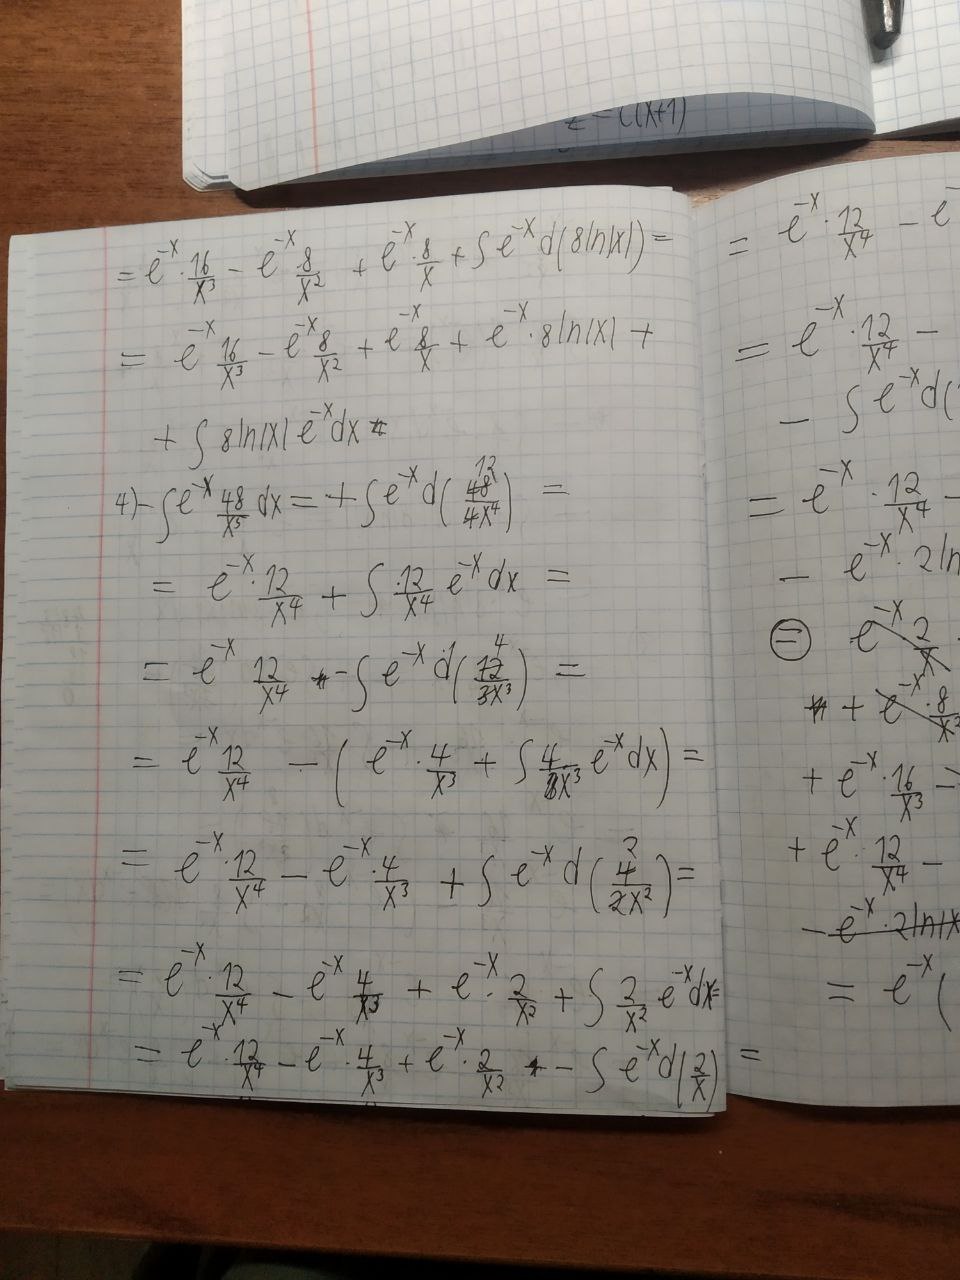 z = C(x+1)
= e^{-x} · 16/x³ - e^{-x} 8/x² + e^{-x} · 8/x + ∫ e^{-x} d(8ln|x|) =
= e^{-x} 16/x³ - e^{-x} 8/x² + e^{-x} 8/x + e^{-x} · 8ln|x| +
+ ∫ 8ln|x| e^{-x} dx
4) - ∫ e^{-x} 48/x⁵ dx = + ∫ e^{-x} d(48/4x⁴) 12 =
= e^{-x} · 12/x⁴ + ∫ 12/x⁴ e^{-x} dx =
= e^{-x} 12/x⁴ - ∫ e^{-x} d(12/3x³) 4 =
= e^{-x} 12/x⁴ - (e^{-x} · 4/x³ + ∫ 4/x³ e^{-x} dx) =
= e^{-x} · 12/x⁴ - e^{-x} · 4/x³ + ∫ e^{-x} d(4/2x²) 2 =
= e^{-x} · 12/x⁴ - e^{-x} 4/x³ + e^{-x} · 2/x² + ∫ 2/x² e^{-x} dx =
= e^{-x} · 12/x⁴ - e^{-x} · 4/x³ + e^{-x} · 2/x² - ∫ e^{-x} d(2/x) =
= e^{-x} · 12/x⁴ - e^{-x}
= e^{-x} · 12/x⁴ -
- ∫ e^{-x} d(
= e^{-x} · 12/x⁴ -
- e^{-x} · 2ln
= e^{-x} 2/x
+ e^{-x} · 8/x²
+ e^{-x} · 16/x³ -
+ e^{-x} · 12/x⁴ -
- e^{-x} · 2ln|x
= e^{-x} (